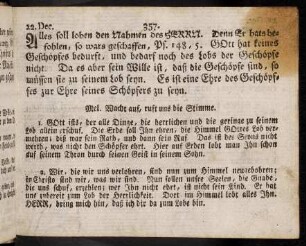 22. Dec. 357.
Alles soll loben den Nahmen des HERRN. Denn Er hats be-
fohlen, so wars geschaffen, Ps. 148, 5. GOtt hat keines
Geschöpfes bedurft, und bedarf noch des Lobs der Geschöpfe
nicht. Da es aber sein Wille ist, daß die Geschöpfe sind, so
müssen sie zu seinem Lob seyn. Es ist eine Ehre des Geschöp-
fes zur Ehre seines Schöpfers zu seyn.
Mel. Wacht auf, ruft uns die Stimme.
1. GOtt ists, der alle Dinge, die herrlichen und die geringe zu seinem
Lob allein erschuf. Die Erde soll Ihn ehren; die Himmel GOttes Lob ver-
mehren; daß war sein Rath, und dann sein Ruf. Das ist der Ehrens nicht
werth, was nicht den Schöpfer ehrt. Hier auf Erden lobt man Ihn schon
auf seinem Thron durch seinen Geist in seinem Sohn.
2. Wir, die wir uns verlohren, sind nun zum Himmel neugebohren;
in Christo sind wir, was wir sind. Nun sollen unsre Seelen, die Gnade,
die uns schuf, erzählen; wer Ihn nicht ehrt, ist nicht sein Kind. Er hat
uns zubereit zum Lob der Herrlichkeit. Dort im Himmel lobt alles Ihn.
HERR, dring mich hin, daß ich dir da zum Lobe bin.